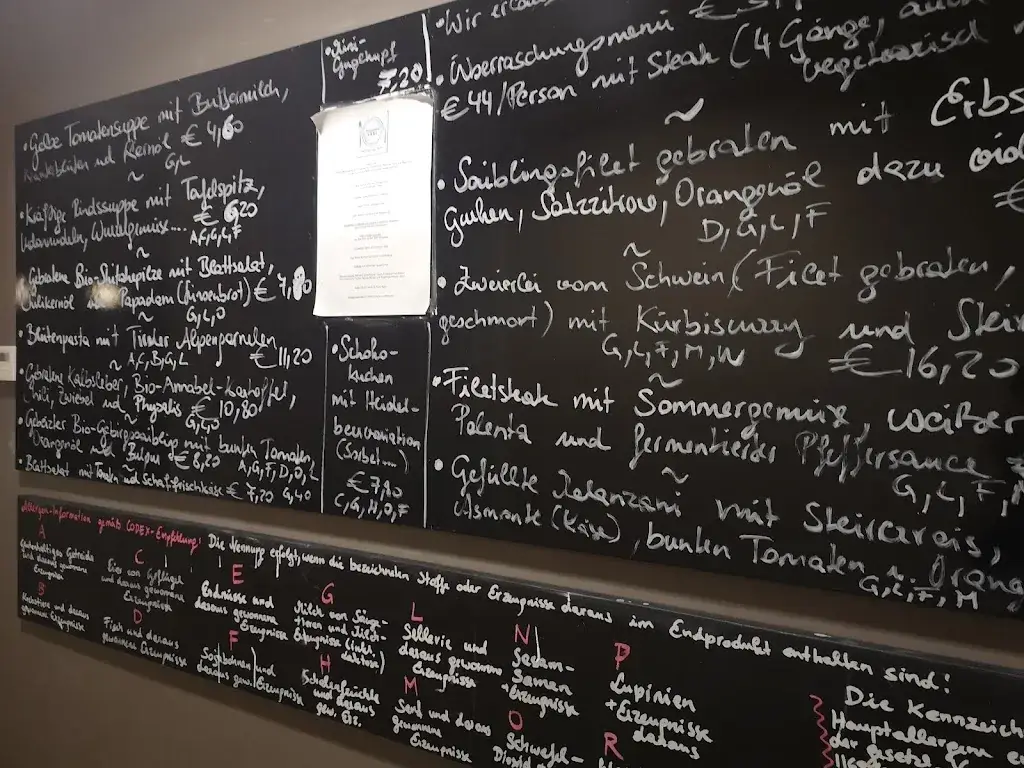 •Gelbe Tomatensuppe mit Buttermilch,
Kürbisblüten und Kernöl € 4,60
G,L
~
•Kräftige Rindssuppe mit Tafelspitz,
Wurzelgemüse.... € 6,20
A,C,G,L,F
~
•Gebratene Bio-Shiitakepilze mit Blattsalat,
Papadam (Linsenbrot) € 7,80
G,L,O
~
•Blütenpasta mit Tiroler Alpengarnelen
A,C,B,G,L € 11,20
•Gebratene Kalbsleber, Bio-Annabel-Kartoffel,
Chili, Zwiebel und Physalis € 10,80
G,L,O
•Gebeizter Bio-Gebirgssaibling mit bunten Tomaten,
Orangenöl und Bulgur € 8,20 A,G,F,D,O,L
•Blattsalat mit und Schafffrischkäse € 7,20 G,L,O
•Mini-
Gugelhupf
7,20
•Schoko-
kuchen
mit Heidel-
beervariation
(Sorbet...)
€ 7,80
C,G,H,O,F
•Wir
Überraschungsmenü
€ 44/Person mit Steak (4 Gänge, auch
vegetarisch
~
•Saiblingsfilet gebraten mit Erbs
Gurken, Salzzitrone, Orangenöl dazu
D,G,L,F €
~
•Zweierlei vom Schwein (Filet gebraten,
geschmort) mit Kürbiscurry und Stein
G,L,F,M,N € 16,20
~
•Filetsteak mit Sommergemüse, weißer
Polenta und fermentierter Pfeffersauce
G,L,F,M
~
•Gefüllte Melanzani mit Steirareis,
Asmonte (Käse), bunten Tomaten & Orange
G,L,F,M
Allergen-Information gemäß CODEX-Empfehlung: Die Nennung erfolgt, wenn die bezeichneten Stoffe oder Erzeugnisse daraus im Endprodukt enthalten sind:
A
Glutenhaltiges Getreide
und daraus gewonnene
Erzeugnisse
B
Krebstiere und daraus
gewonnene Erzeugnisse
C
Eier von Geflügel
und daraus gewonnene
Erzeugnisse
D
Fisch und daraus
gewonnene Erzeugnisse
E
Erdnüsse und
daraus gewonnene
Erzeugnisse
F
Sojabohnen und
daraus gew. Erzeugnisse
G
Milch von Säuge-
tieren und Milch-
Erzeugnisse (inkl.
Laktose)
H
Schalenfrüchte
und daraus
gew. Erz.
L
Sellerie und
daraus gewonnene
Erzeugnisse
M
Senf und daraus
gewonnene
Erzeugnisse
N
Sesam-
Samen
+ Erzeugnisse
O
Schwefel-
Dioxid
P
Lupinien
+ Erzeugnisse
daraus
R
Die Kennzeich
Hauptallergenen
der gesetz